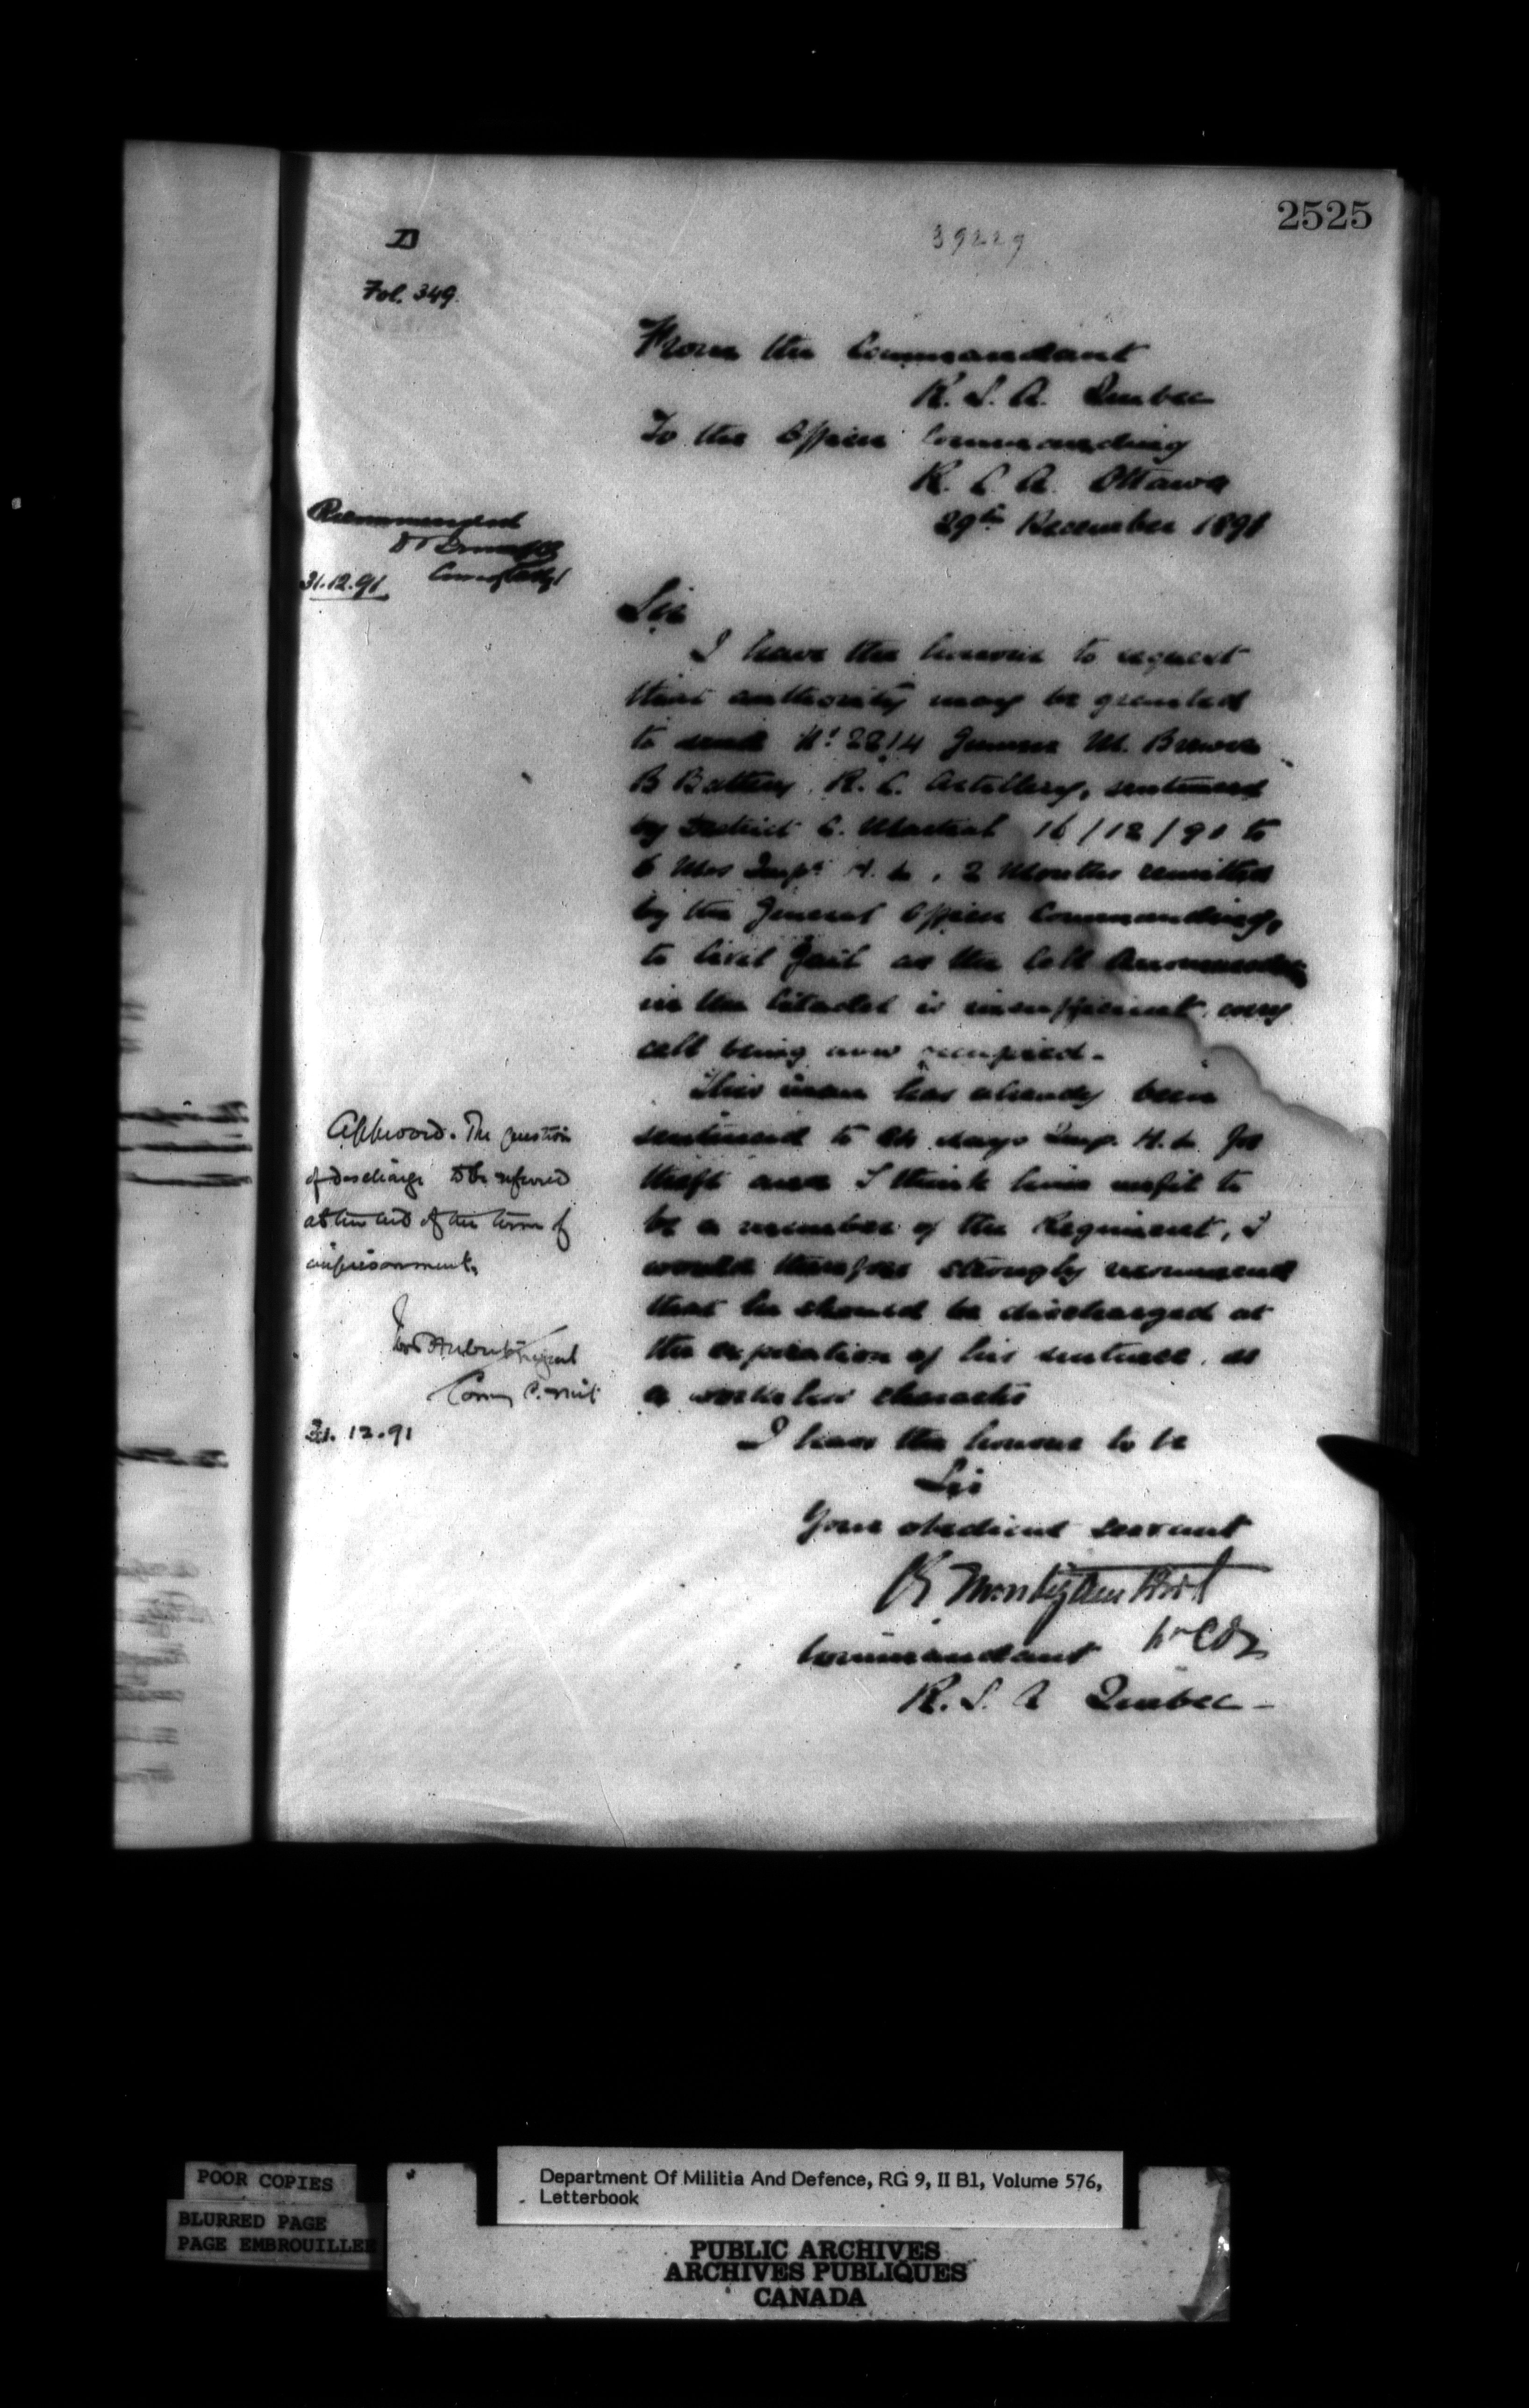 2525
39229
D
Fol. 349.
From the Commandant
R. S. A. Quebec
To the Officer Commanding
R. C. A. Ottawa
29th December 1891
Recommended
31.12.91
Sir
I have the honour to request
that authority may be granted
to send No 2214 Gunner M. Brown
B Battery, R. C. Artillery, sentenced
by District C. Martial 16/12/91 to
6 Mos Impt H. L., 2 Months remitted
by the General Officer Commanding,
to Civil Jail as the Cell
in the Citadel is insufficient, every
cell being now occupied.
This man has already been
sentenced to days Imp. H. L. for
theft and I think him unfit to
be a member of the Regiment, I
would therefore strongly recommend
that he should be discharged at
the expiration of his sentence, as
a worthless character
Approved. The question
of discharge to be referred
at the end of the term of
imprisonment.
Comg C. Mil
31.12.91
I have the honour to be
Sir
Your obedient servant
Commandant
R. S. A Quebec -
POOR COPIES
BLURRED PAGE
PAGE EMBROUILLEE
Department Of Militia And Defence, RG 9, II B1, Volume 576,
Letterbook
PUBLIC ARCHIVES
ARCHIVES PUBLIQUES
CANADA